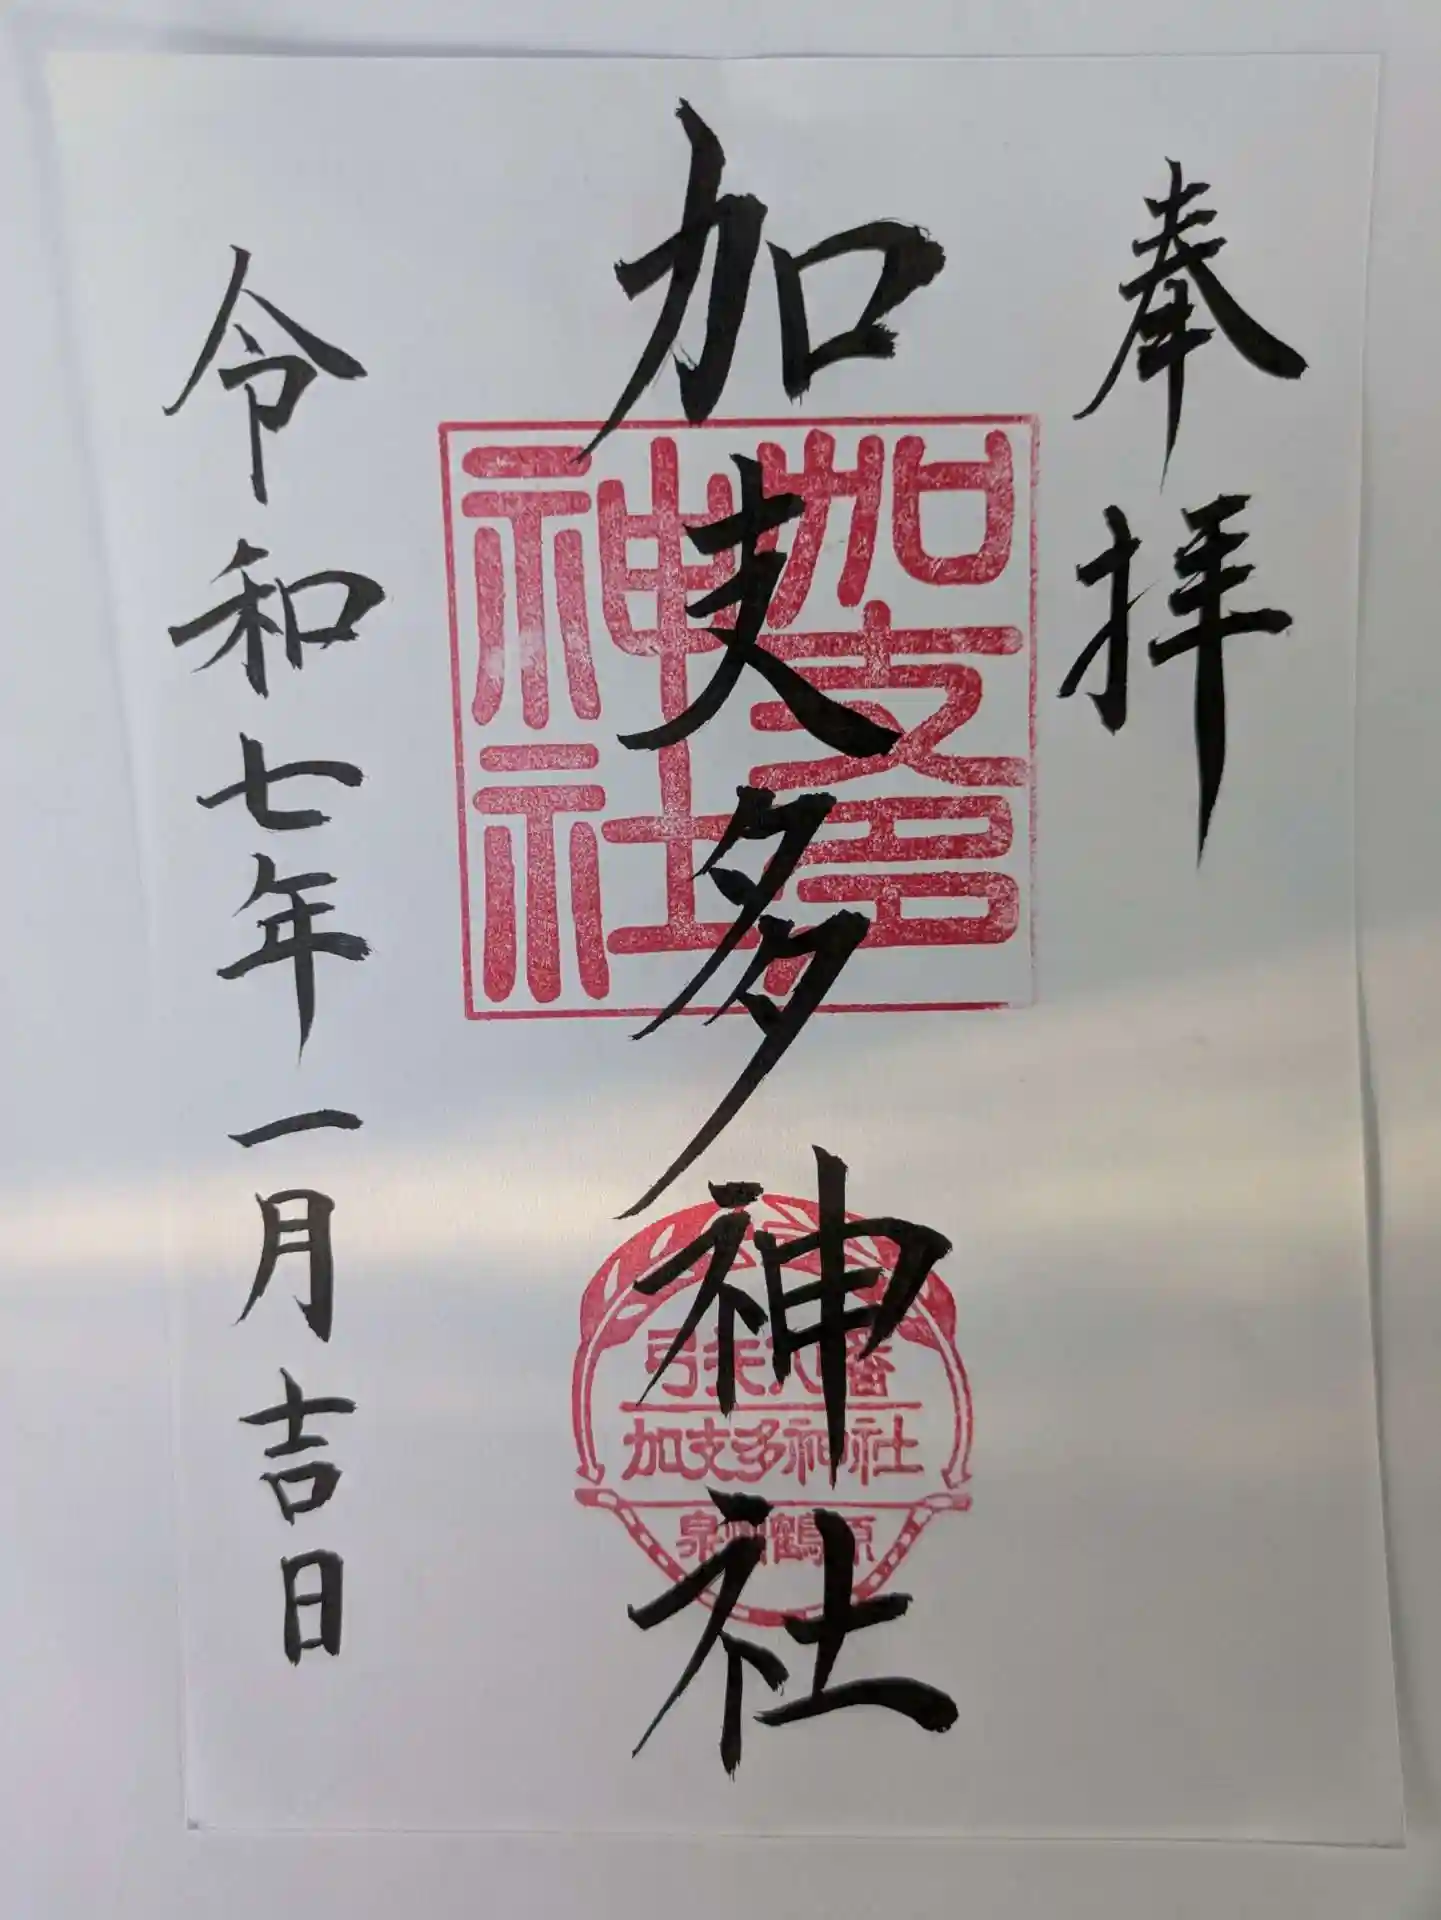 奉拝
加支多神社
加支多
神社
弓矢八幡
加支多神社
泉州鶴原
令和七年一月吉日